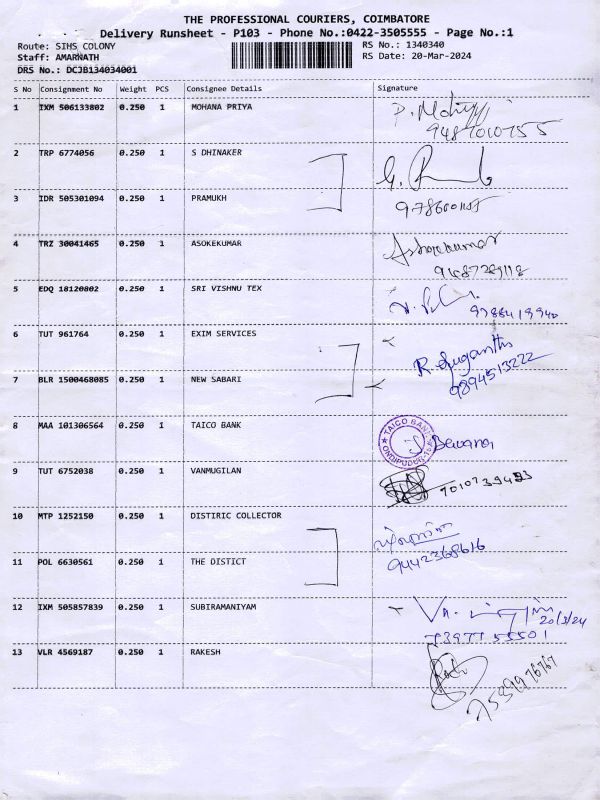 THE PROFESSIONAL COURIERS, COIMBATORE
Delivery Runsheet - P103 - Phone No.:0422-3505555 - Page No.:1
Route: SIHS COLONY
RS No.: 1340340
Staff: AMARNATH
RS Date: 20-Mar-2024
DRS No.: DCJB134034001
S No Consignment No Weight PCS Consignee Details Signature
1 IXM 506133802 0.250 1 MOHANA PRIYA
9487010755
2 TRP 6774056 0.250 1 S DHINAKER
3 IDR 505301094 0.250 1 PRAMUKH
4 TRZ 30041465 0.250 1 ASOKEKUMAR Ashokekumar
5 EDQ 18120802 0.250 1 SRI VISHNU TEX
6 TUT 961764 0.250 1 EXIM SERVICES
R. Suganthi
9894513222
7 BLR 1500468085 0.250 1 NEW SABARI
8 MAA 101306564 0.250 1 TAICO BANK TAICO BANK
9 TUT 6752038 0.250 1 VANMUGILAN
10 MTP 1252150 0.250 1 DISTIRIC COLLECTOR
9442368616
11 POL 6630561 0.250 1 THE DISTICT
12 IXM 505857839 0.250 1 SUBIRAMANIYAM
20/3/24
7397755501
13 VLR 4569187 0.250 1 RAKESH